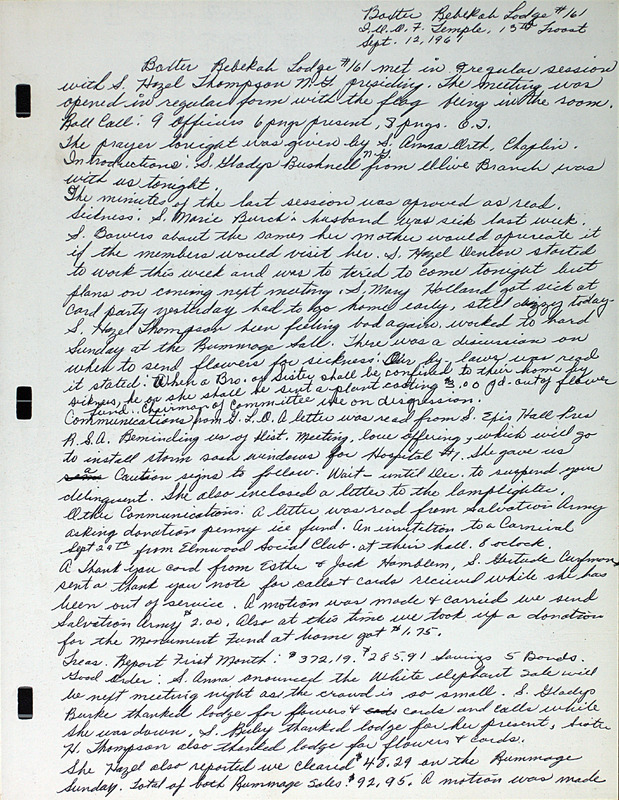 Baxter Rebekah Lodge #161
I.O.O.F. Temple, 13th Troost
Sept. 12, 1967
Baxter Rebekah Lodge #161 met in regular session
with S. Hazel Thompson N.G. presiding. The meeting was
opened in regular form with the flag being in the room.
Roll Call: 9 Officers 6 pngs present, 8 pngs. O.J.
The prayer tonight was given by S. Anna Orth, Chaplin.
Introductions: S. Gladys Bushnell N.G. from Olive Branch was
with us tonight.
The minutes of the last session was aproved as read.
Sickness. S. Marie Burch's husband was sick last week.
S. Bowers about the same, her mother would apreciate it
if the members would visit her. S. Hazel Denton started
to work this week and was to tried to come tonight but
plans on coming next meeting. S. Mary Holland got sick at
card party yesterday had to go home early, still dizzy today.
S. Hazel Thompson been feeling bad again, worked to hard
Sunday at the Rummage Sall. There was a discussion on
when to send flowers for sickness. Our by-laws was read
it stated: When a Bro. or Sister shall be confined to their home by
sickness, he or she shall be sent a plant costing $3.00 pd. out of flower
fund. Chairman of Committee use on disgression.
Communications from G.L.O. A letter was read from S. Epis Hall Pres
R.S.A. Reminding us of Dist. Meeting, love offering, which will go
to install storm windows for Hospital #1. She gave us
a Caution signs to follow. Wait until Dec. to suspend your
delinquent. She also inclosed a letter to the lamplighter.
Other Communications: A letter was read from Salvation Army
asking donation penny ice fund. An invitation to a Carnival
Sept 29th from Elmwood Social Club. at their hall. 8 oclock.
A Thank you card from Esther & Jack Hamblem, S. Gertude
sent a thank you note for calls & cards recieved while she has
been out of service. A motion was made & carried we send
Salvation Army $2.00. Also at this time we took up a donation
for the Monument Fund at home got $1.75.
Treas. Report First Month: $372.19. $285.91 Savings 5 Bonds.
Good Order: S. Anna anounced the White elephant Sale will
be next meeting night as the crowd is so small. S. Gladys
Burke thanked lodge for flowers & cards and calls while
she was down. S. Ruby thanked lodge for her present, Sister
H. Thompson also thanked lodge for flowers & cards.
She Hazel also reported we cleared $48.29 on the Rummage
Sunday. Total of both Rummage Sales: $92.95. A motion was made